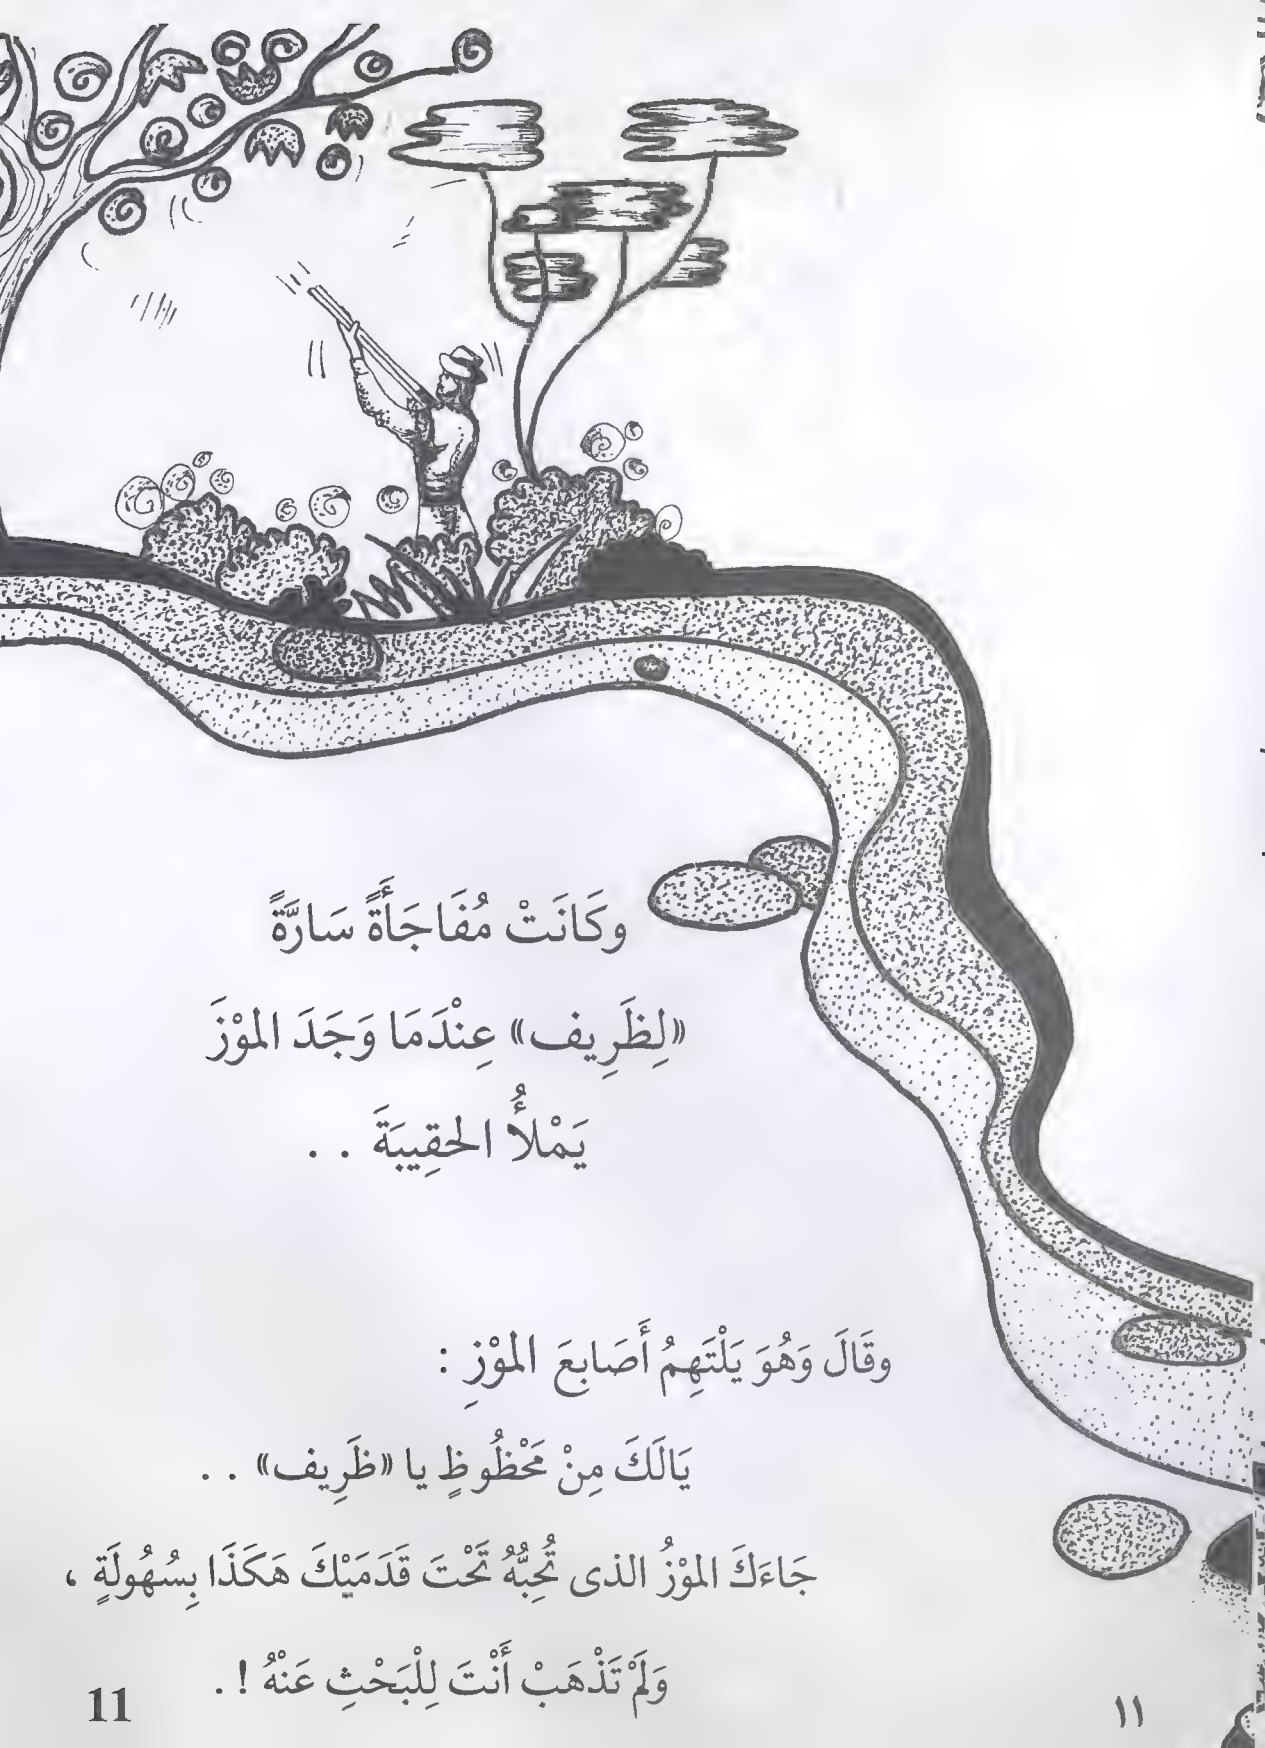 وكَانَتْ مُفَاجَأَةً سَارَّةً
«لِظَرِيف» عِنْدَمَا وَجَدَ الموْزَ
يَمْلأُ الحقِيبَةَ . .
وقَالَ وَهُوَ يَلْتَهِمُ أَصَابعَ الموْزِ :
يَالَكَ مِنْ مَحْظُوظٍ يا «ظَرِيف» . .
جَاءَكَ الموْزُ الذى تُحِبُّهُ تَحْتَ قَدَمَيْكَ هَكَذَا بِسُهُولَةٍ ،
وَلَمْ تَذْهَبْ أَنْتَ لِلْبَحْثِ عَنْهُ ! .
١١
11